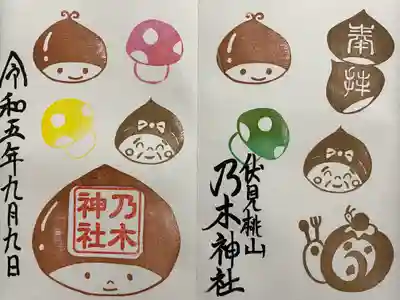 奉拝
伏見桃山
乃木神社
乃木神社
令和五年九月九日